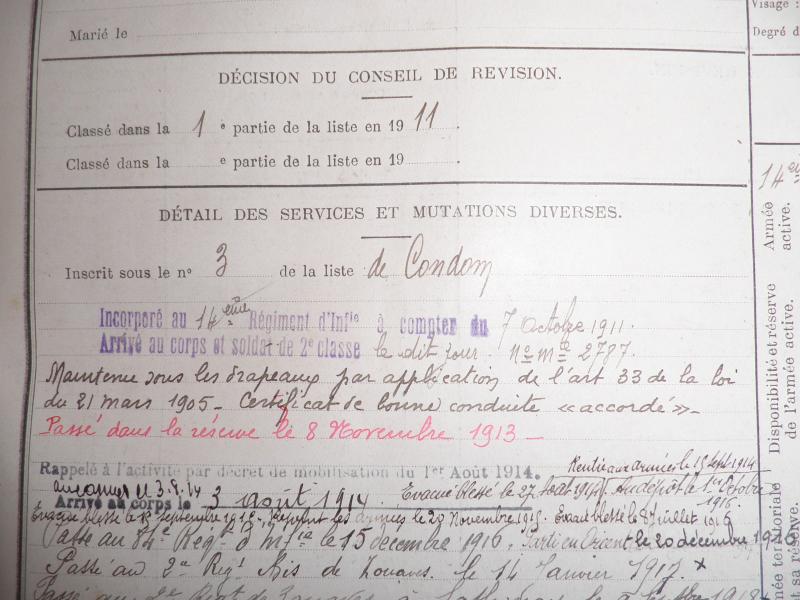 Visage :
Marié le
Degré d
DÉCISION DU CONSEIL DE REVISION.
Classé dans la 1 e partie de la liste en 1911.
Classé dans la e partie de la liste en 19 .
14 ei
DÉTAIL DES SERVICES ET MUTATIONS DIVERSES.
Inscrit sous le no 3 de la liste : de Condom
Incorporé au 14eme Régiment d'Infie à compter du 7 Octobre 1911.
Arrivé au corps et soldat de 2e classe le dit jour. No Mle 2787.
Maintenu sous les drapeaux par application de l'art 33 de la loi
du 21 mars 1905 - Certificat de bonne conduite «accordé» -
Passé dans la réserve le 8 Novembre 1913 -
Rentré aux armées le 15 Sept 1914
Rappelé à l'activité par décret de mobilisation du 1er Août 1914.
Evacué blessé le 27 Août 1914. Au dépôt le 1er Octobre
Arrivé au corps le 3 août 1914
Evacué blessé le septembre 1915. Rejoint les armées le 29 Novembre 1915. Evacué blessé le juillet 1916
Passé au 84e Regt d'Infie le 15 décembre 1916. Parti en Orient le 20 décembre 1916
Passé au 2e Regt Bis de Zouaves le 14 Janvier 1917.
Armée active.
Disponibilité et réserve de l'armée active.